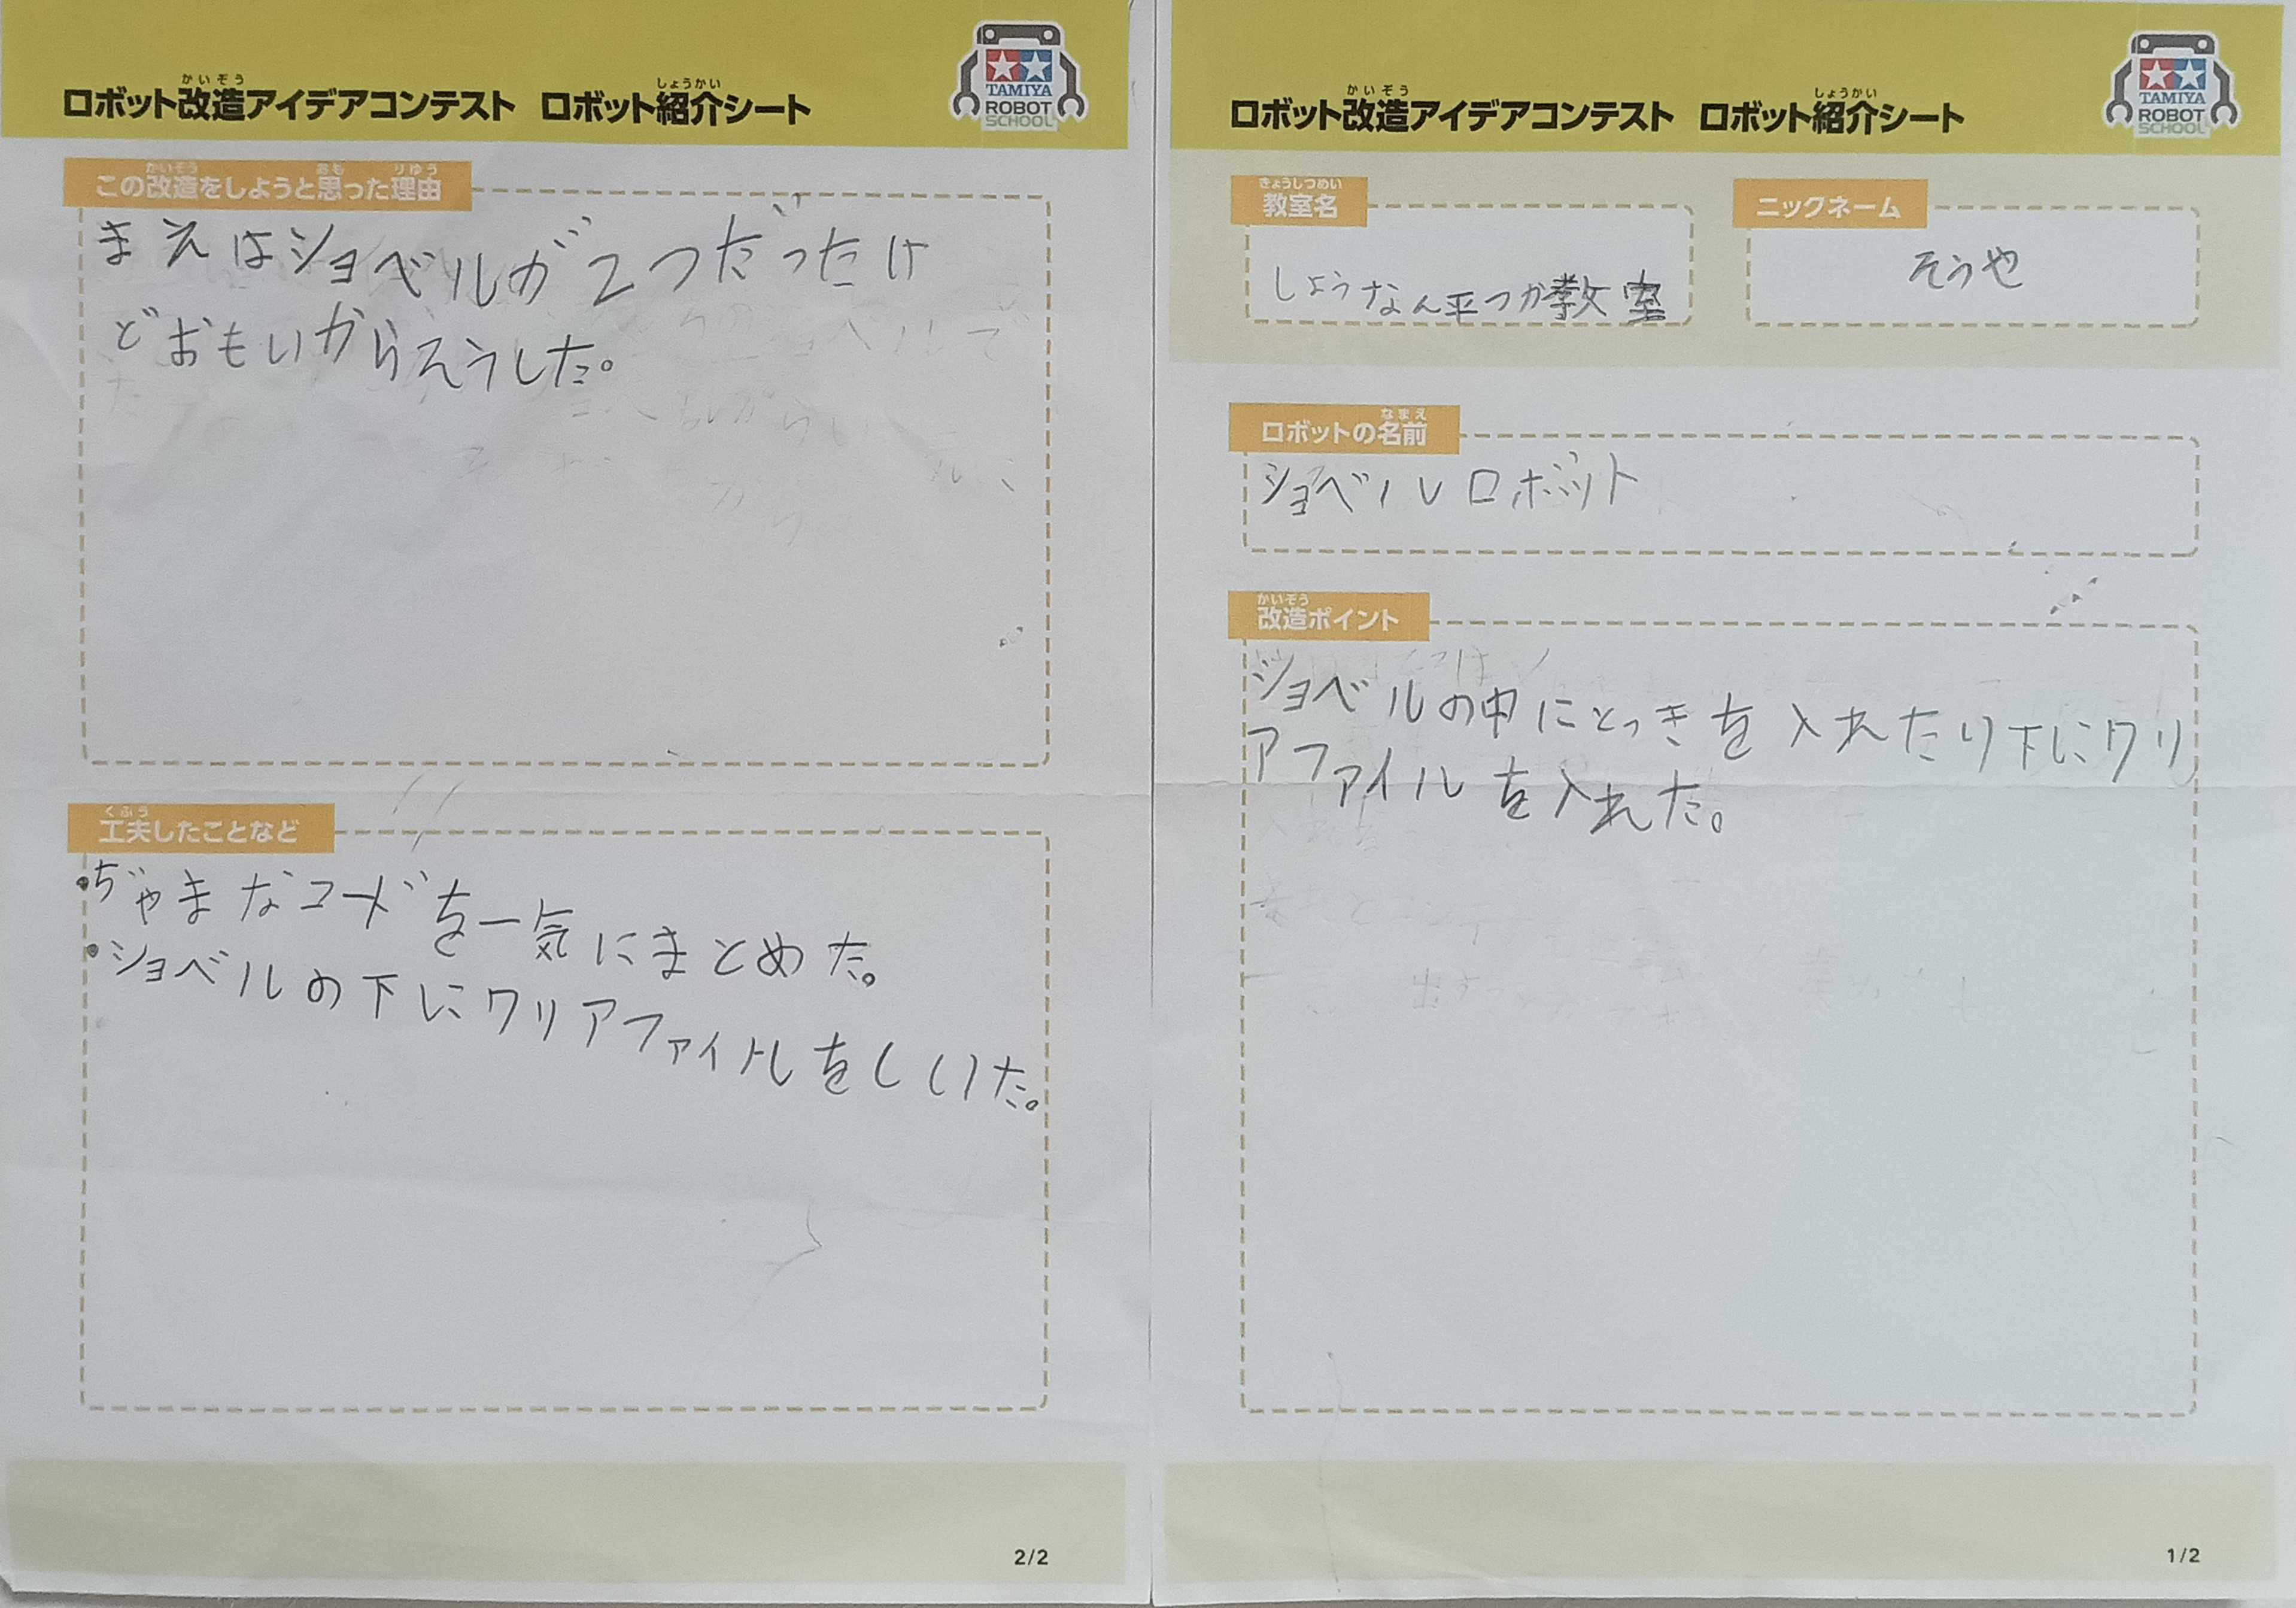 かいぞう しょうかい
ロボット改造アイデアコンテスト ロボット紹介シート
TAMIYA
ROBOT
SCHOOL
かいぞう おも りゆう
この改造をしようと思った理由
まえはショベルが2つだったけ
どおもいからそうした。
くふう
工夫したことなど
・ぢゃまなコードを一気にまとめた。
・ショベルの下にワリアファイルをしいた。
2/2
かいぞう しょうかい
ロボット改造アイデアコンテスト ロボット紹介シート
TAMIYA
ROBOT
SCHOOL
きょうしつめい
教室名
しょうなん平つか教室
ニックネーム
そうや
なまえ
ロボットの名前
ショベルロボット
かいぞう
改造ポイント
ショベルの中にとっきを入れたり下にワリ
アファイルを入れた。
1/2